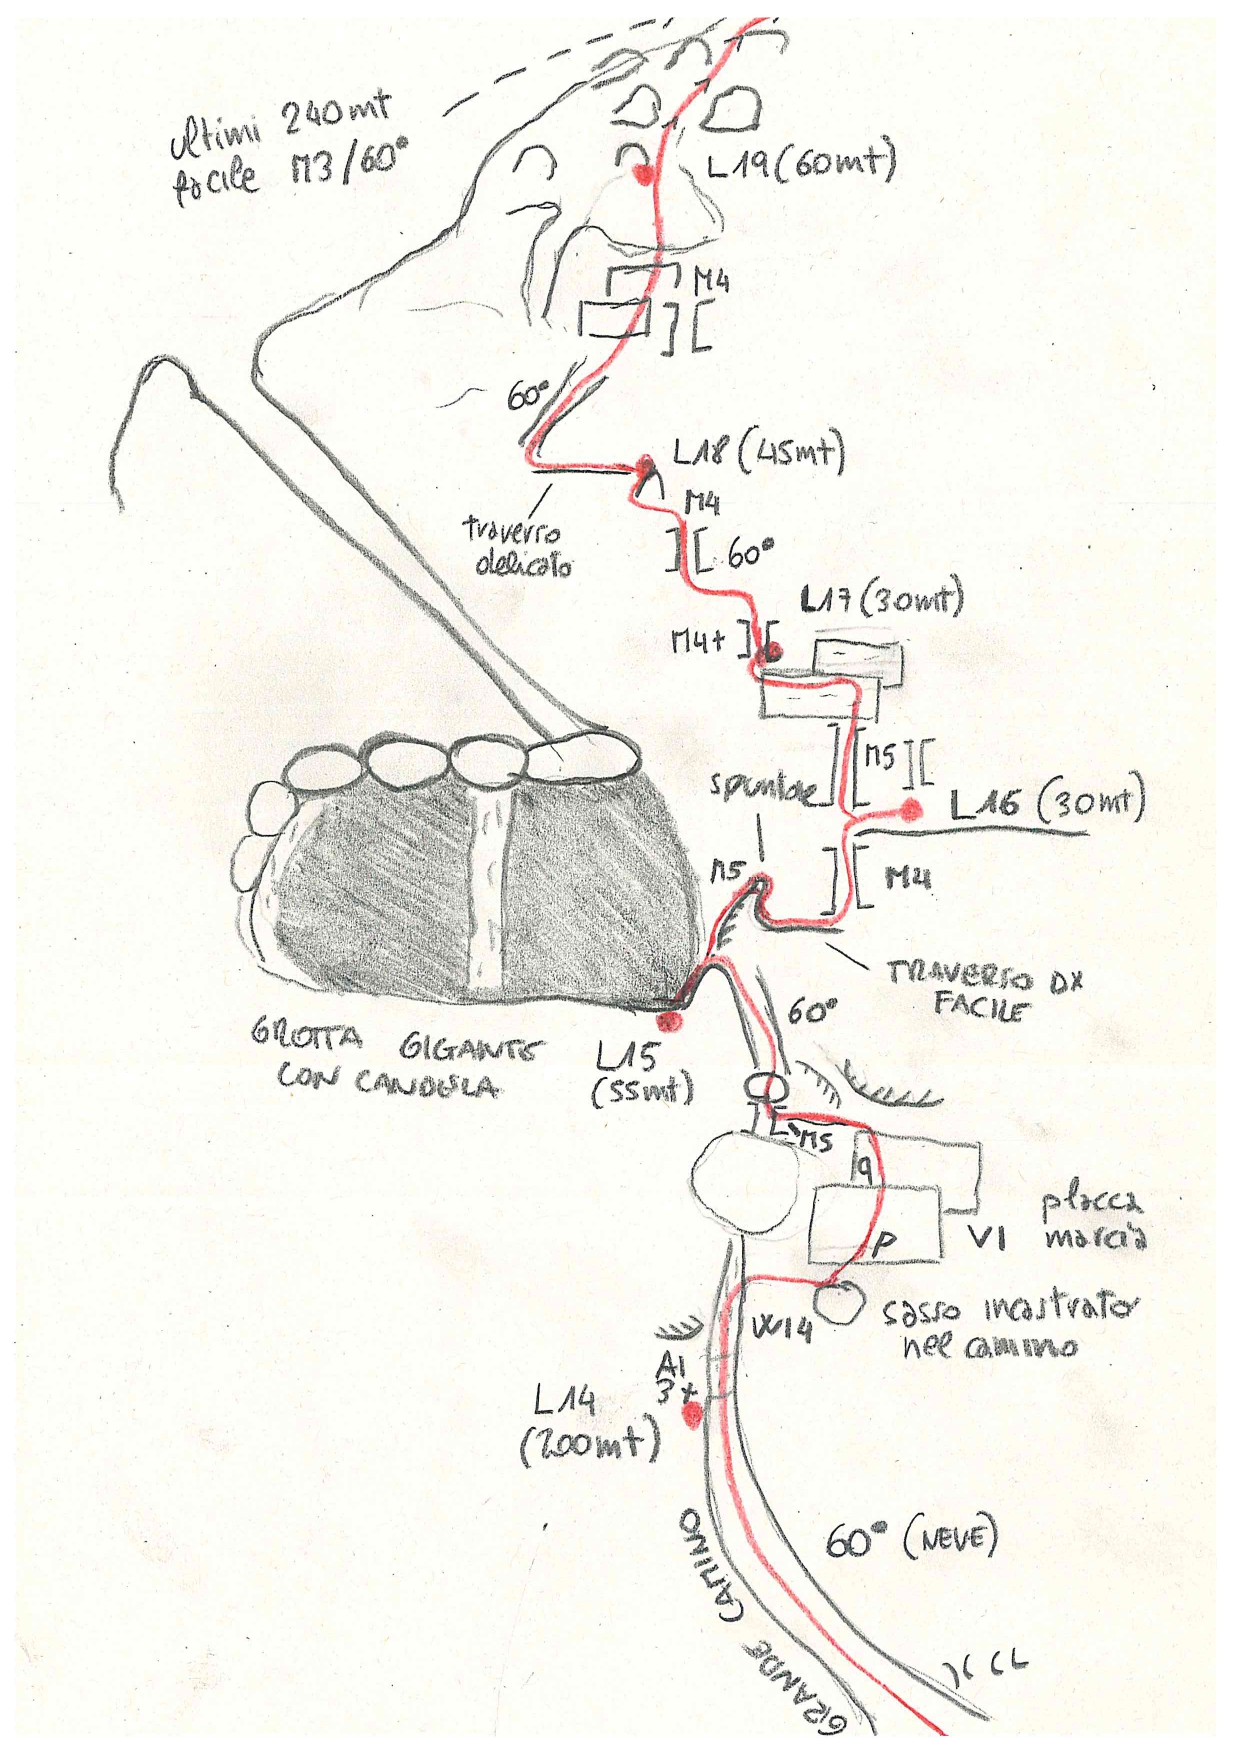 ultimi 240mt
facile M3/60°
L19 (60mt)
M4
60°
L18 (45mt)
M4
traverso
delicato
60°
L17 (30mt)
M4+
M5
spuntone
L16 (30mt)
M5
M4
TRAVERSO DX
FACILE
60°
GROTTA GIGANTE
CON CANDELA
L15
(55mt)
M5
q
placca
marcia
VI
p
sasso incastrato
nel camino
WI4
A1
3+
L14
(200mt)
60° (NEVE)
GRANDE CAMINO